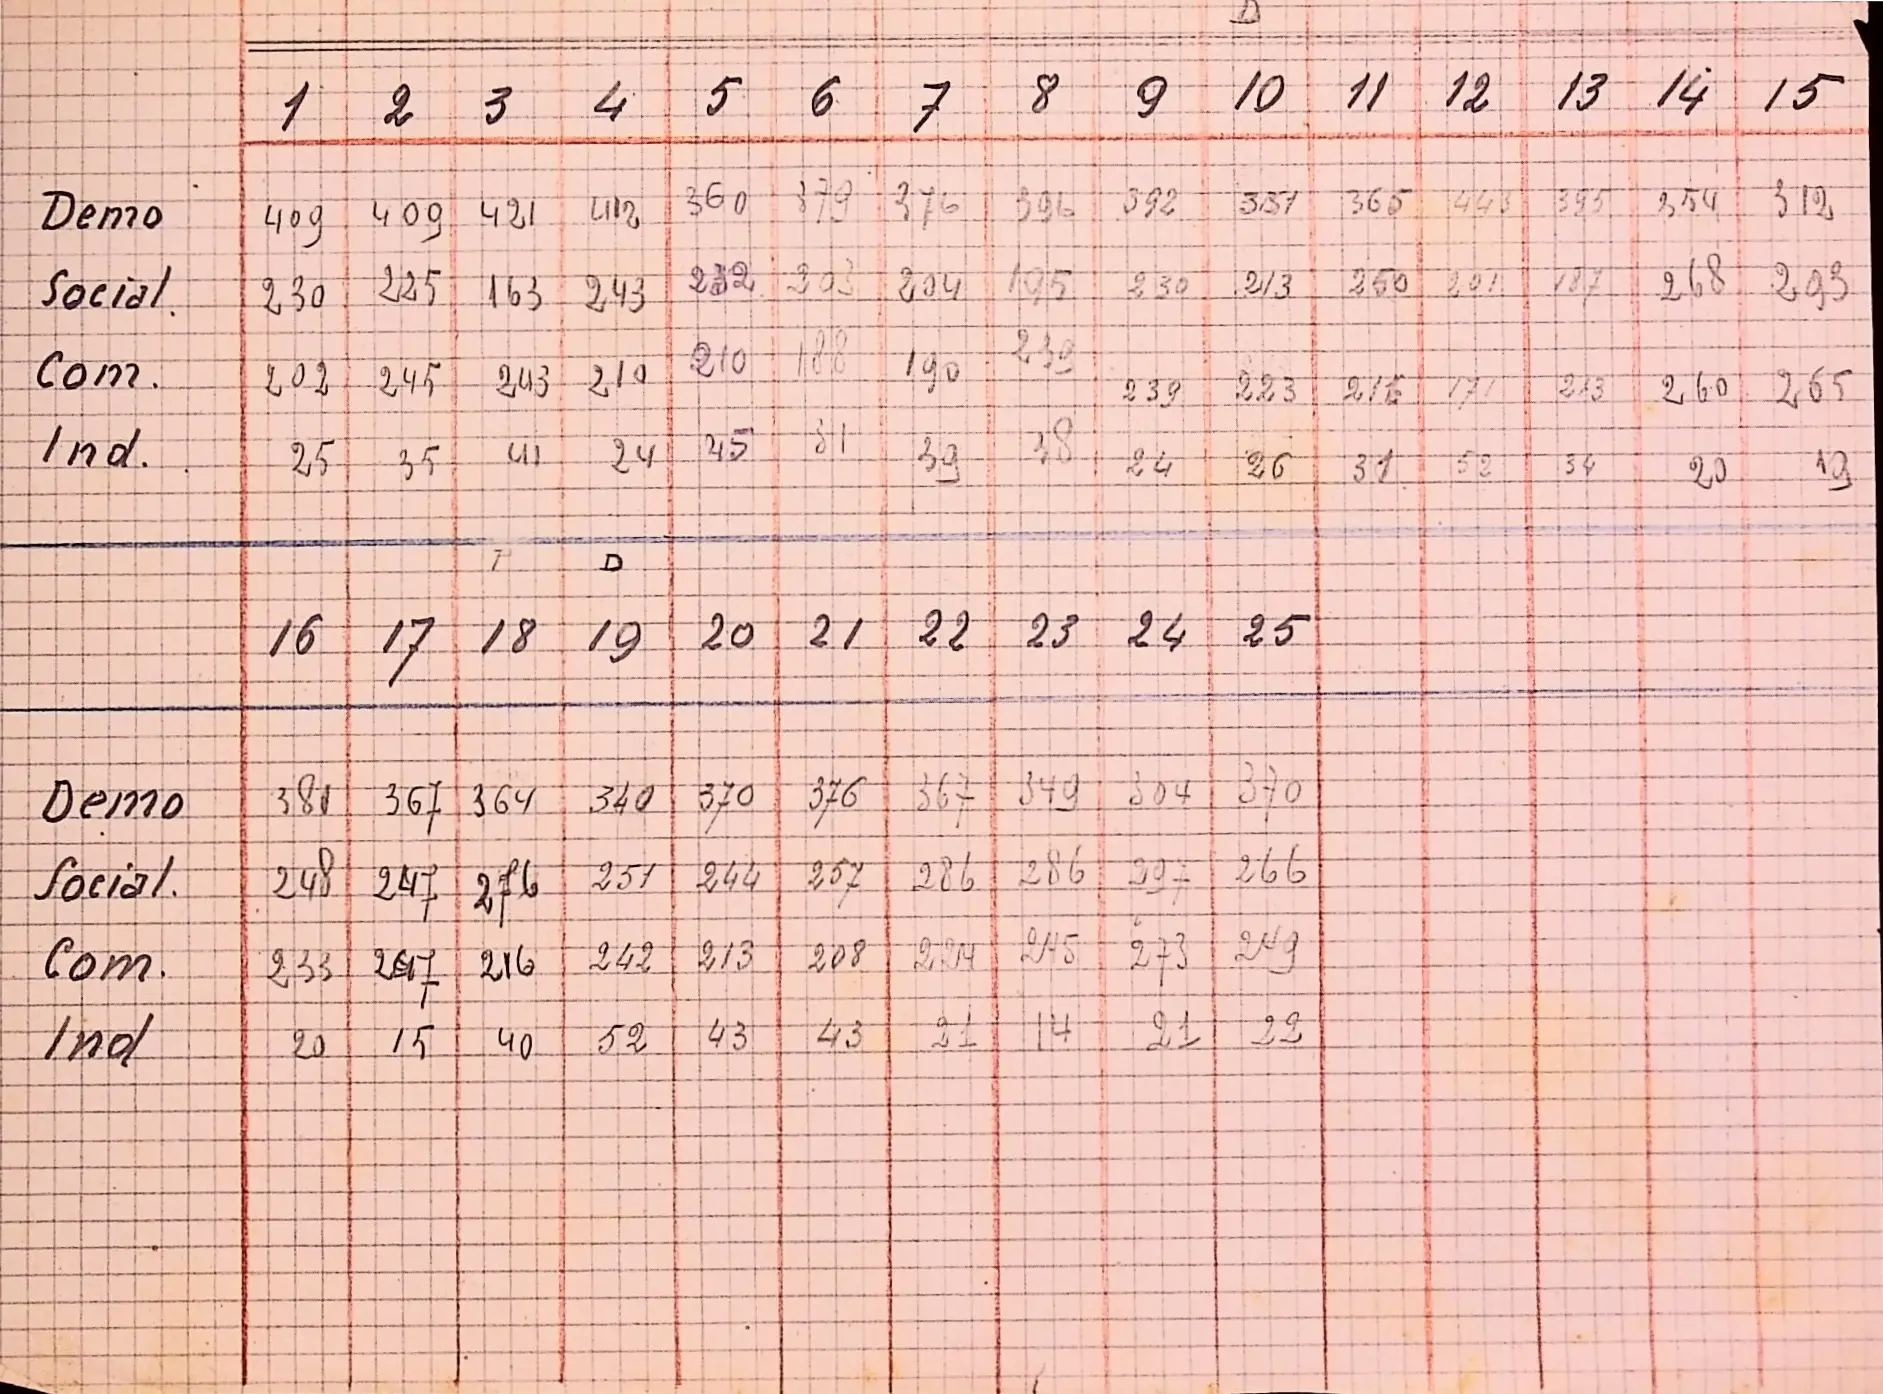 D
1 2 3 4 5 6 7 8 9 10 11 12 13 14 15
Demo 409 409 421 412 360 379 376 396 392 331 365 443 395 354 312
Social. 230 225 163 243 232 203 204 195 230 213 250 201 187 268 293
Com. 202 245 243 210 210 188 190 239 239 223 171 213 260 265
Ind. 25 35 41 24 45 31 39 38 24 26 31 52 34 20 19
T D
16 17 18 19 20 21 22 23 24 25
Demo 381 367 364 340 370 376 367 349 304 370
Social. 248 247 276 251 244 257 286 286 297 266
Com. 233 216 242 213 208 224 245 273 249
Ind 20 15 40 52 43 43 21 14 21 22